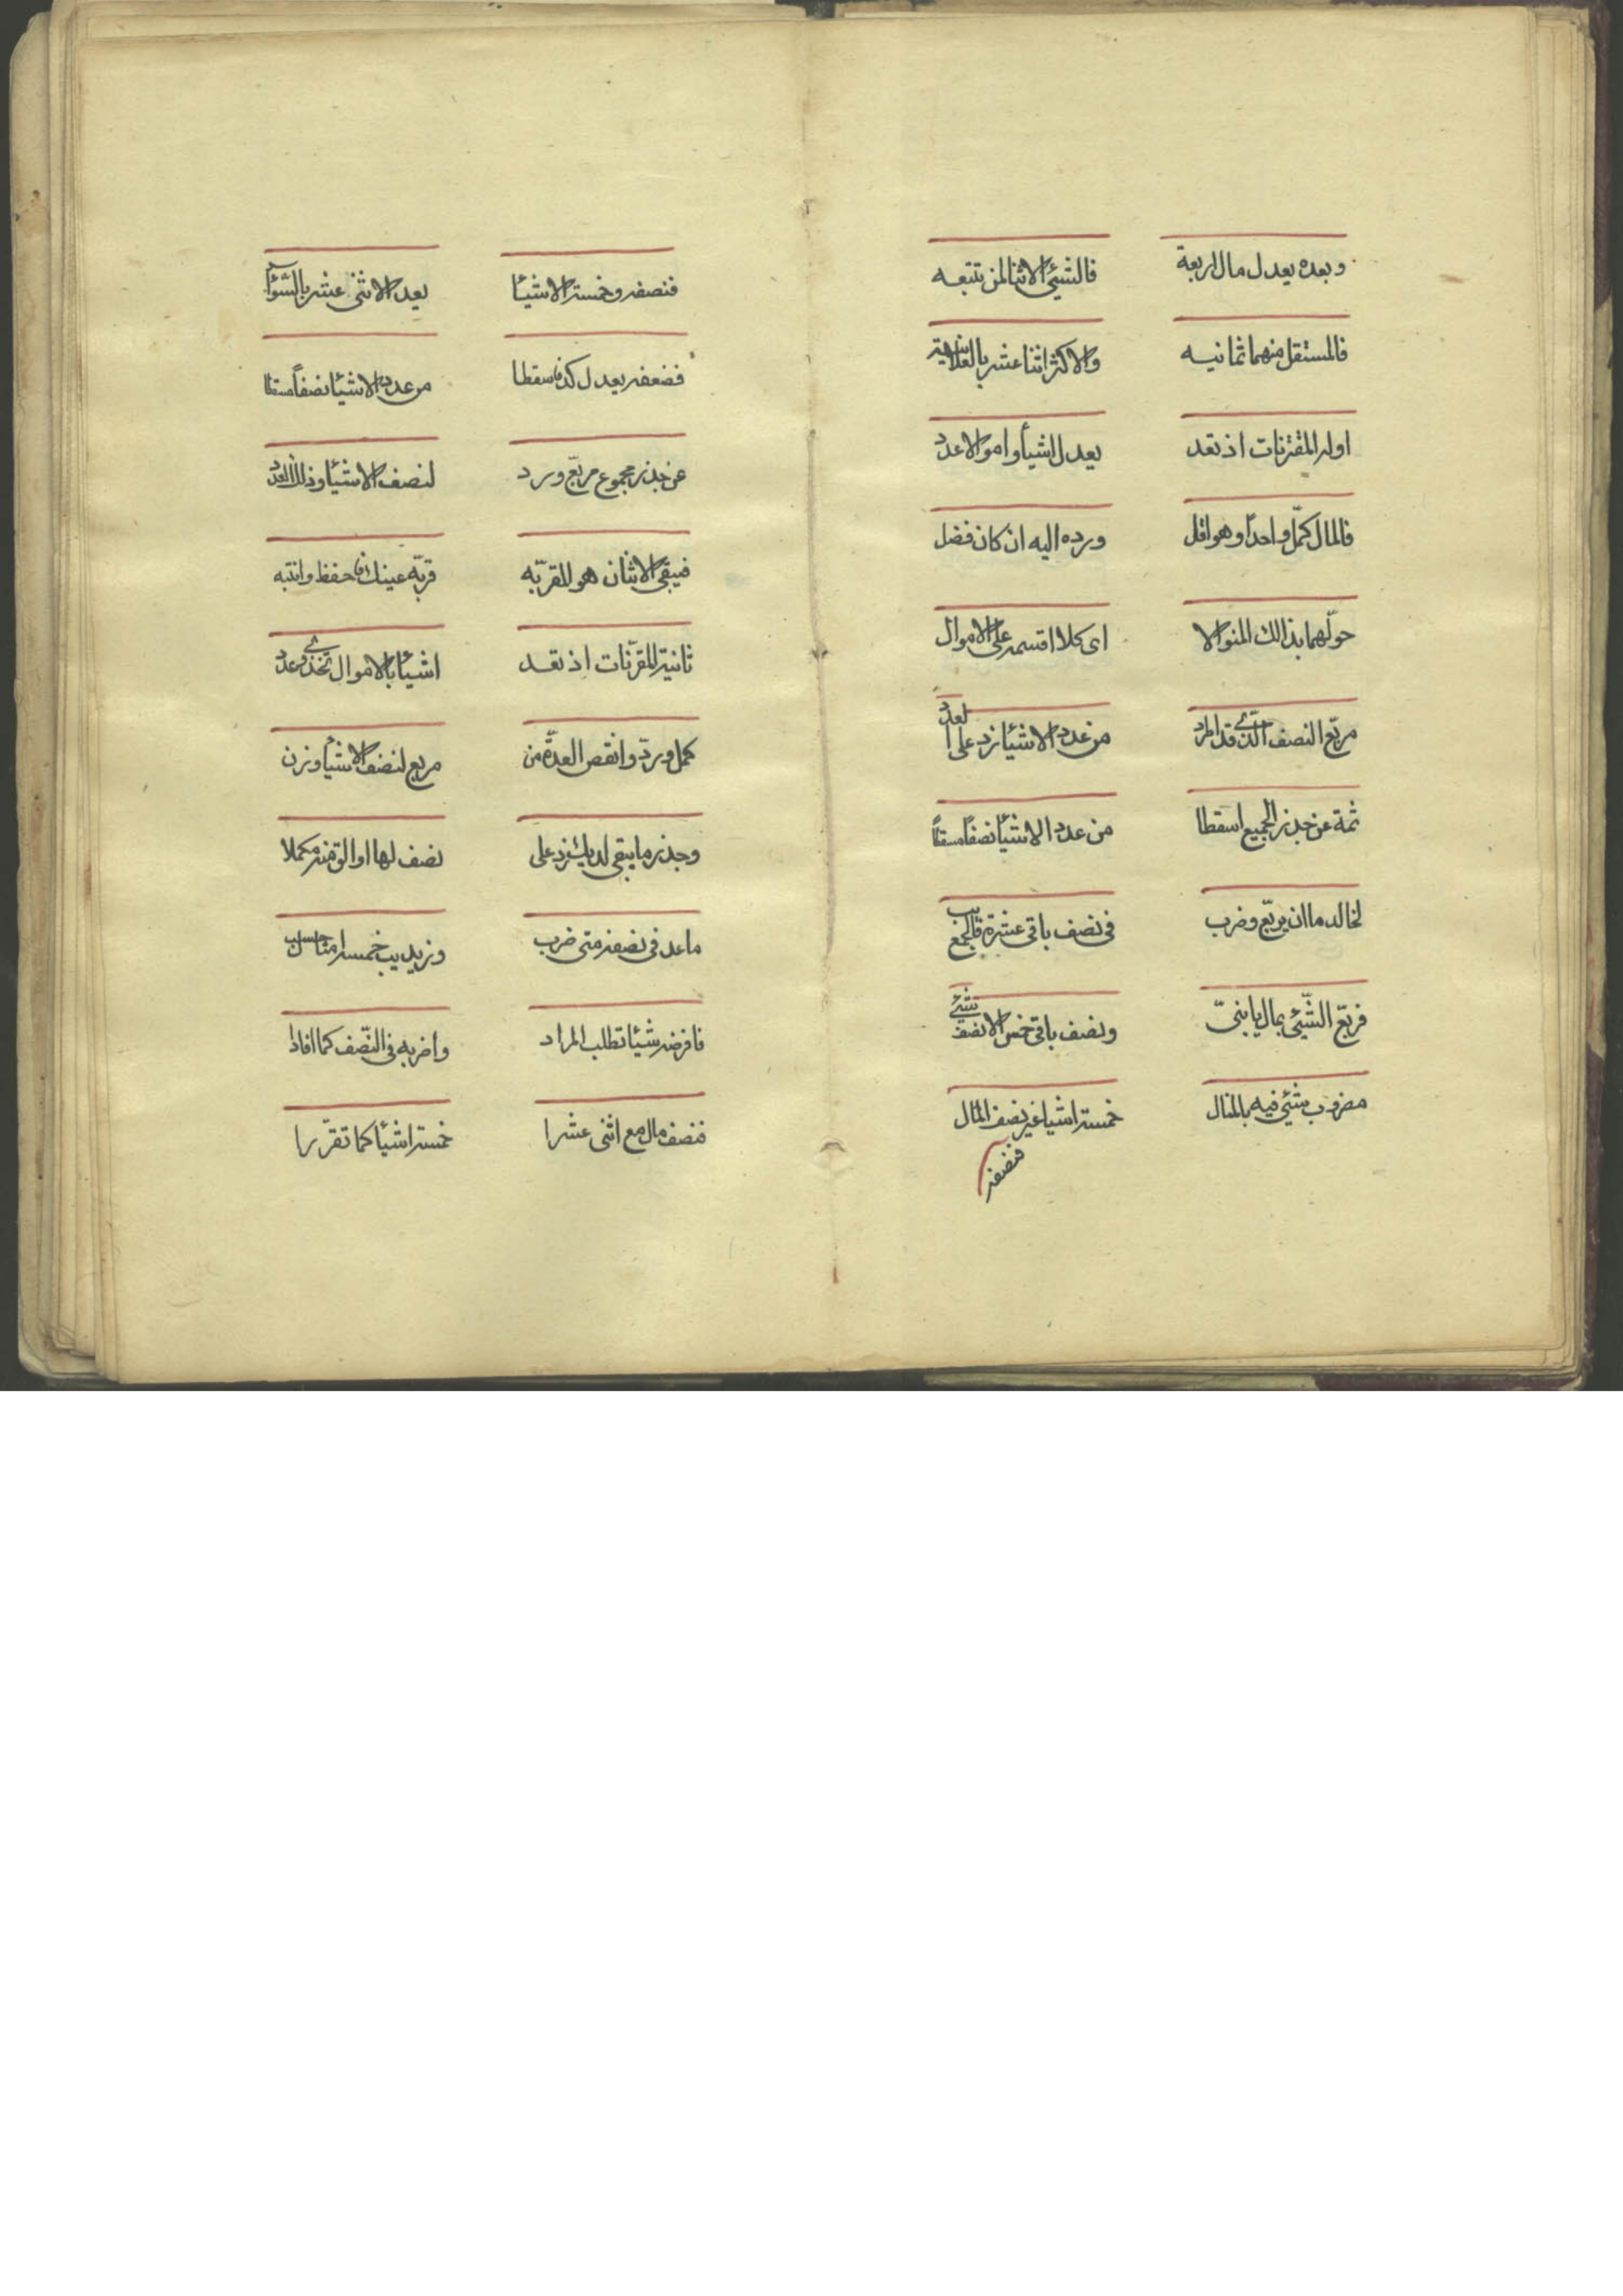 وبعده يعدل مال اربعة فالشيئ الاثنا لمن تتبعه
فالمستقل منهما ثمانيه والاكثر اثنا عشر بالعلانية
اولى المقترنات اذ تعد يعدل اشيأ واموالا عدد
فالمال كمّل واحداً وهو اقل ورده اليه ان كان فضل
حوّلهما بذالك المنوالا اى كلا اقسمه على الاموال
مربّع النصف الذى قد المرد من عدد الاشيئا زد على العدد
ثمة عن جذر الجميع اسقطا من عدد الاشيئا نصفاً مسقطاً
لخالد ما ان يربّع وضرب فى نصف باقى عشرة فالجمع يب
فربّع الشّيئ بمال يا بنىّ ونصف باقى خمس الا نصف شيئ
مضروب شيئ فيه بالمنال خمسة اشيا غير نصف المال
فنصفه
فنصفه وخمسة الاشيئا يعدل الاثنى عشر بالشؤا
فضعفه يعدل كد فاسقطا من عدد الاشيئا نصفاً مسقطا
عن جذر مجموع مربّع ورد لنصف الاشيئا وذلك العدد
فيبقى الاثنان هو المقر به قربّه عينك فاحفظ وانتبه
ثانية المقرنات اذ تعد اشيئا بالاموال تحذى وعدد
كمل ورد وانقص العدّة من مربع لنصف الاشيا وزن
وجذر ما يبقى لديك زد على نصف لها او الق منه مكملا
ما عد فى نصفه متى ضرب وزيد يب خمسة امثا حسب
فافرضه شيئا تطلب المراد واضربه فى النّصف كما افاد
فنصف مال مع اثنى عشرا خمسة اشيئا كما تقرّرا